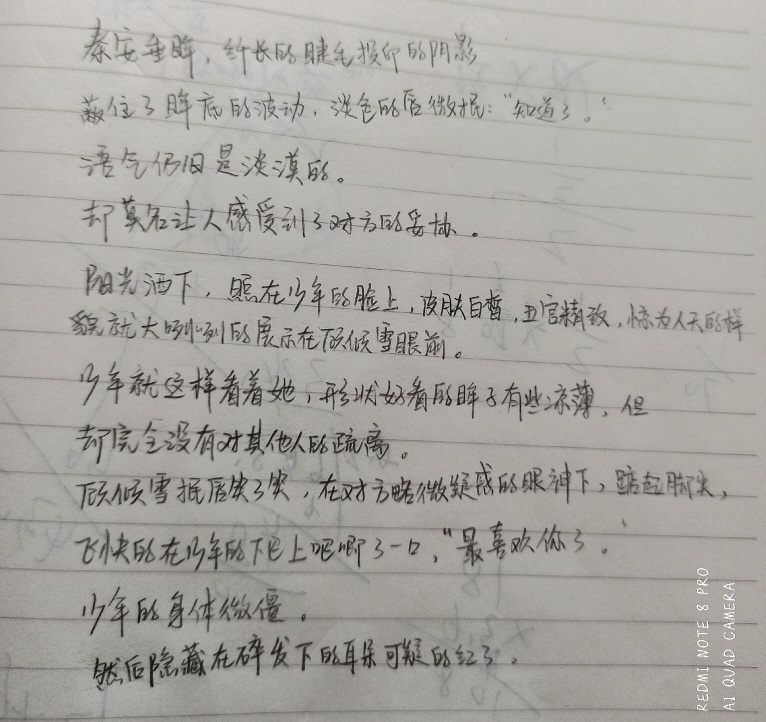 秦安垂眸，纤长的睫毛投印的阴影
蔽住了眸底的波动，淡色的唇微抿：“知道了。”
语气仍旧是淡漠的。
却莫名让人感受到了对方的妥协。
阳光洒下，照在少年的脸上，皮肤白皙，五官精致，惊为人天的样
貌就大咧咧的展示在顾倾雪眼前。
少年就这样看着她，形状好看的眸子有些凉薄，但
却完全没有对其他人的疏离。
顾倾雪抿唇笑了笑，在对方略微疑惑的眼神下，踮起脚尖，
飞快的在少年的下巴上吧唧了一口，“最喜欢你了。”
少年的身体微僵。
然后隐藏在碎发下的耳朵可疑的红了。
REDMI NOTE 8 PRO
AI QUAD CAMERA